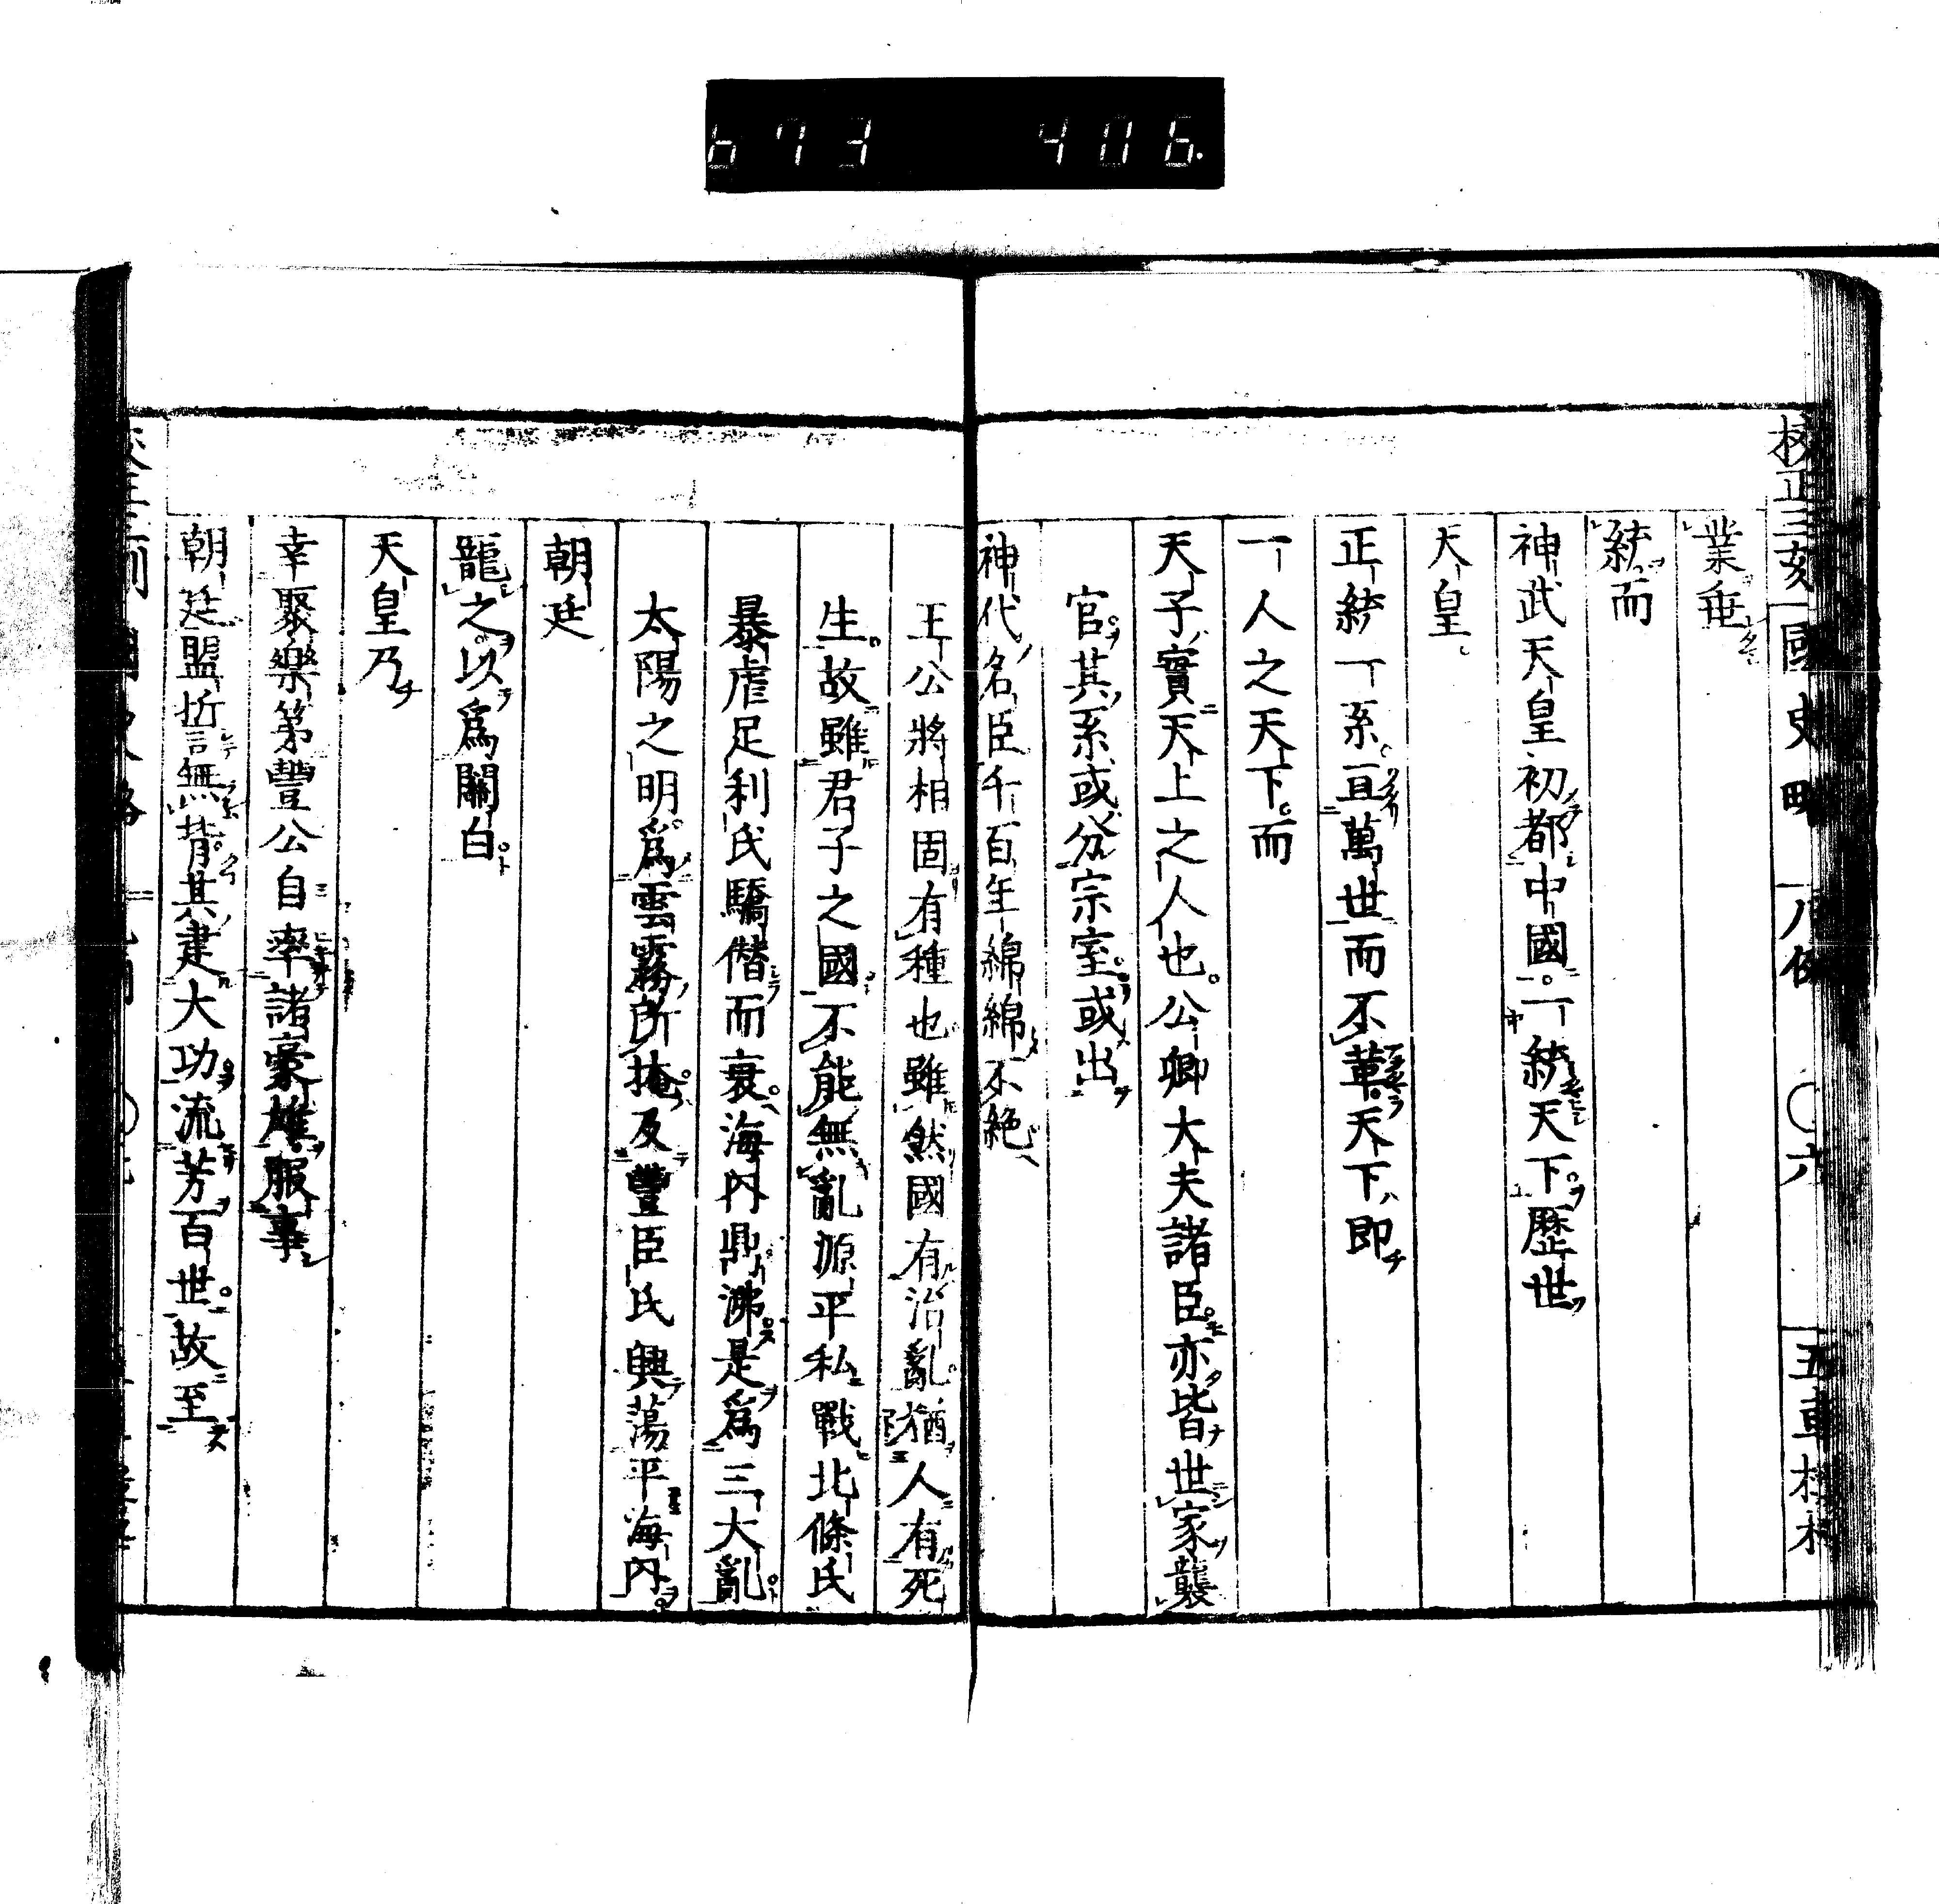 673 406.
校正三刻 國史略 凡例 〇六 五車樓
業垂
統而
神武天皇初都中國一統天下歷世
天皇
正統一系亘萬世而不革天下即
一人之天下而
天子實天上之人也公卿大夫諸臣亦皆世家襲
官其系或分宗室或出
神代名臣千百年綿綿不絕
王公將相固有種也雖然國有治亂猶人有死
生故雖君子之國不能無亂源平私戰北條氏
暴虐足利氏驕僭而衰海內鼎沸是爲三大亂
太陽之明爲雲霧所掩及豐臣氏興蕩平海內
朝廷
龍之以爲關白
天皇乃
幸聚樂第豐公自率諸豪雄服事
朝廷盟誓無背其建大功流芳百世故至